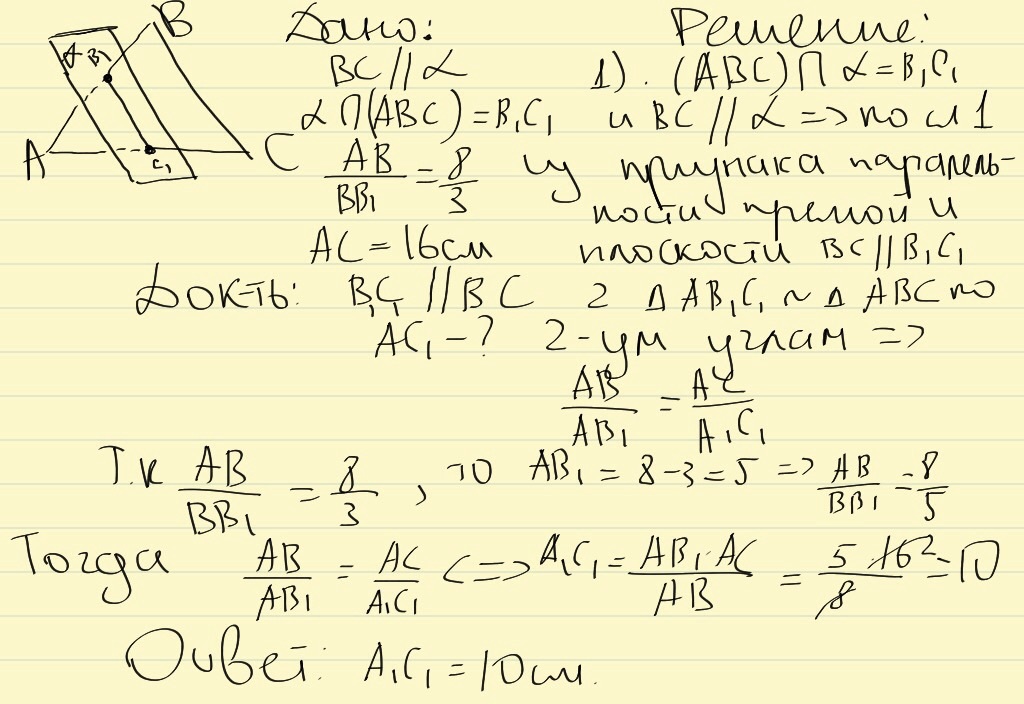 α B₁ B
A C₁ C
Дано:
BC // α
α ∩ (ABC) = B₁C₁
AB/BB₁ = 8/3
AC = 16см
Док-ть: B₁C₁ // BC
AC₁ - ?
Решение:
1). (ABC) ∩ α = B₁C₁
и BC // α => по сл 1
из признака паралель-
ности прямой и
плоскости BC // B₁C₁
2 Δ AB₁C₁ ~ Δ ABC по
2-ум углам =>
AB/AB₁ = AC/A₁C₁
Т.к AB/BB₁ = 8/3, то AB₁ = 8 - 3 = 5 => AB/BB₁ = 8/5
Тогда AB/AB₁ = AC/A₁C₁ <=> A₁C₁ = AB₁·AC/AB = 5·16²/8 = 10
Ответ: A₁C₁ = 10см.